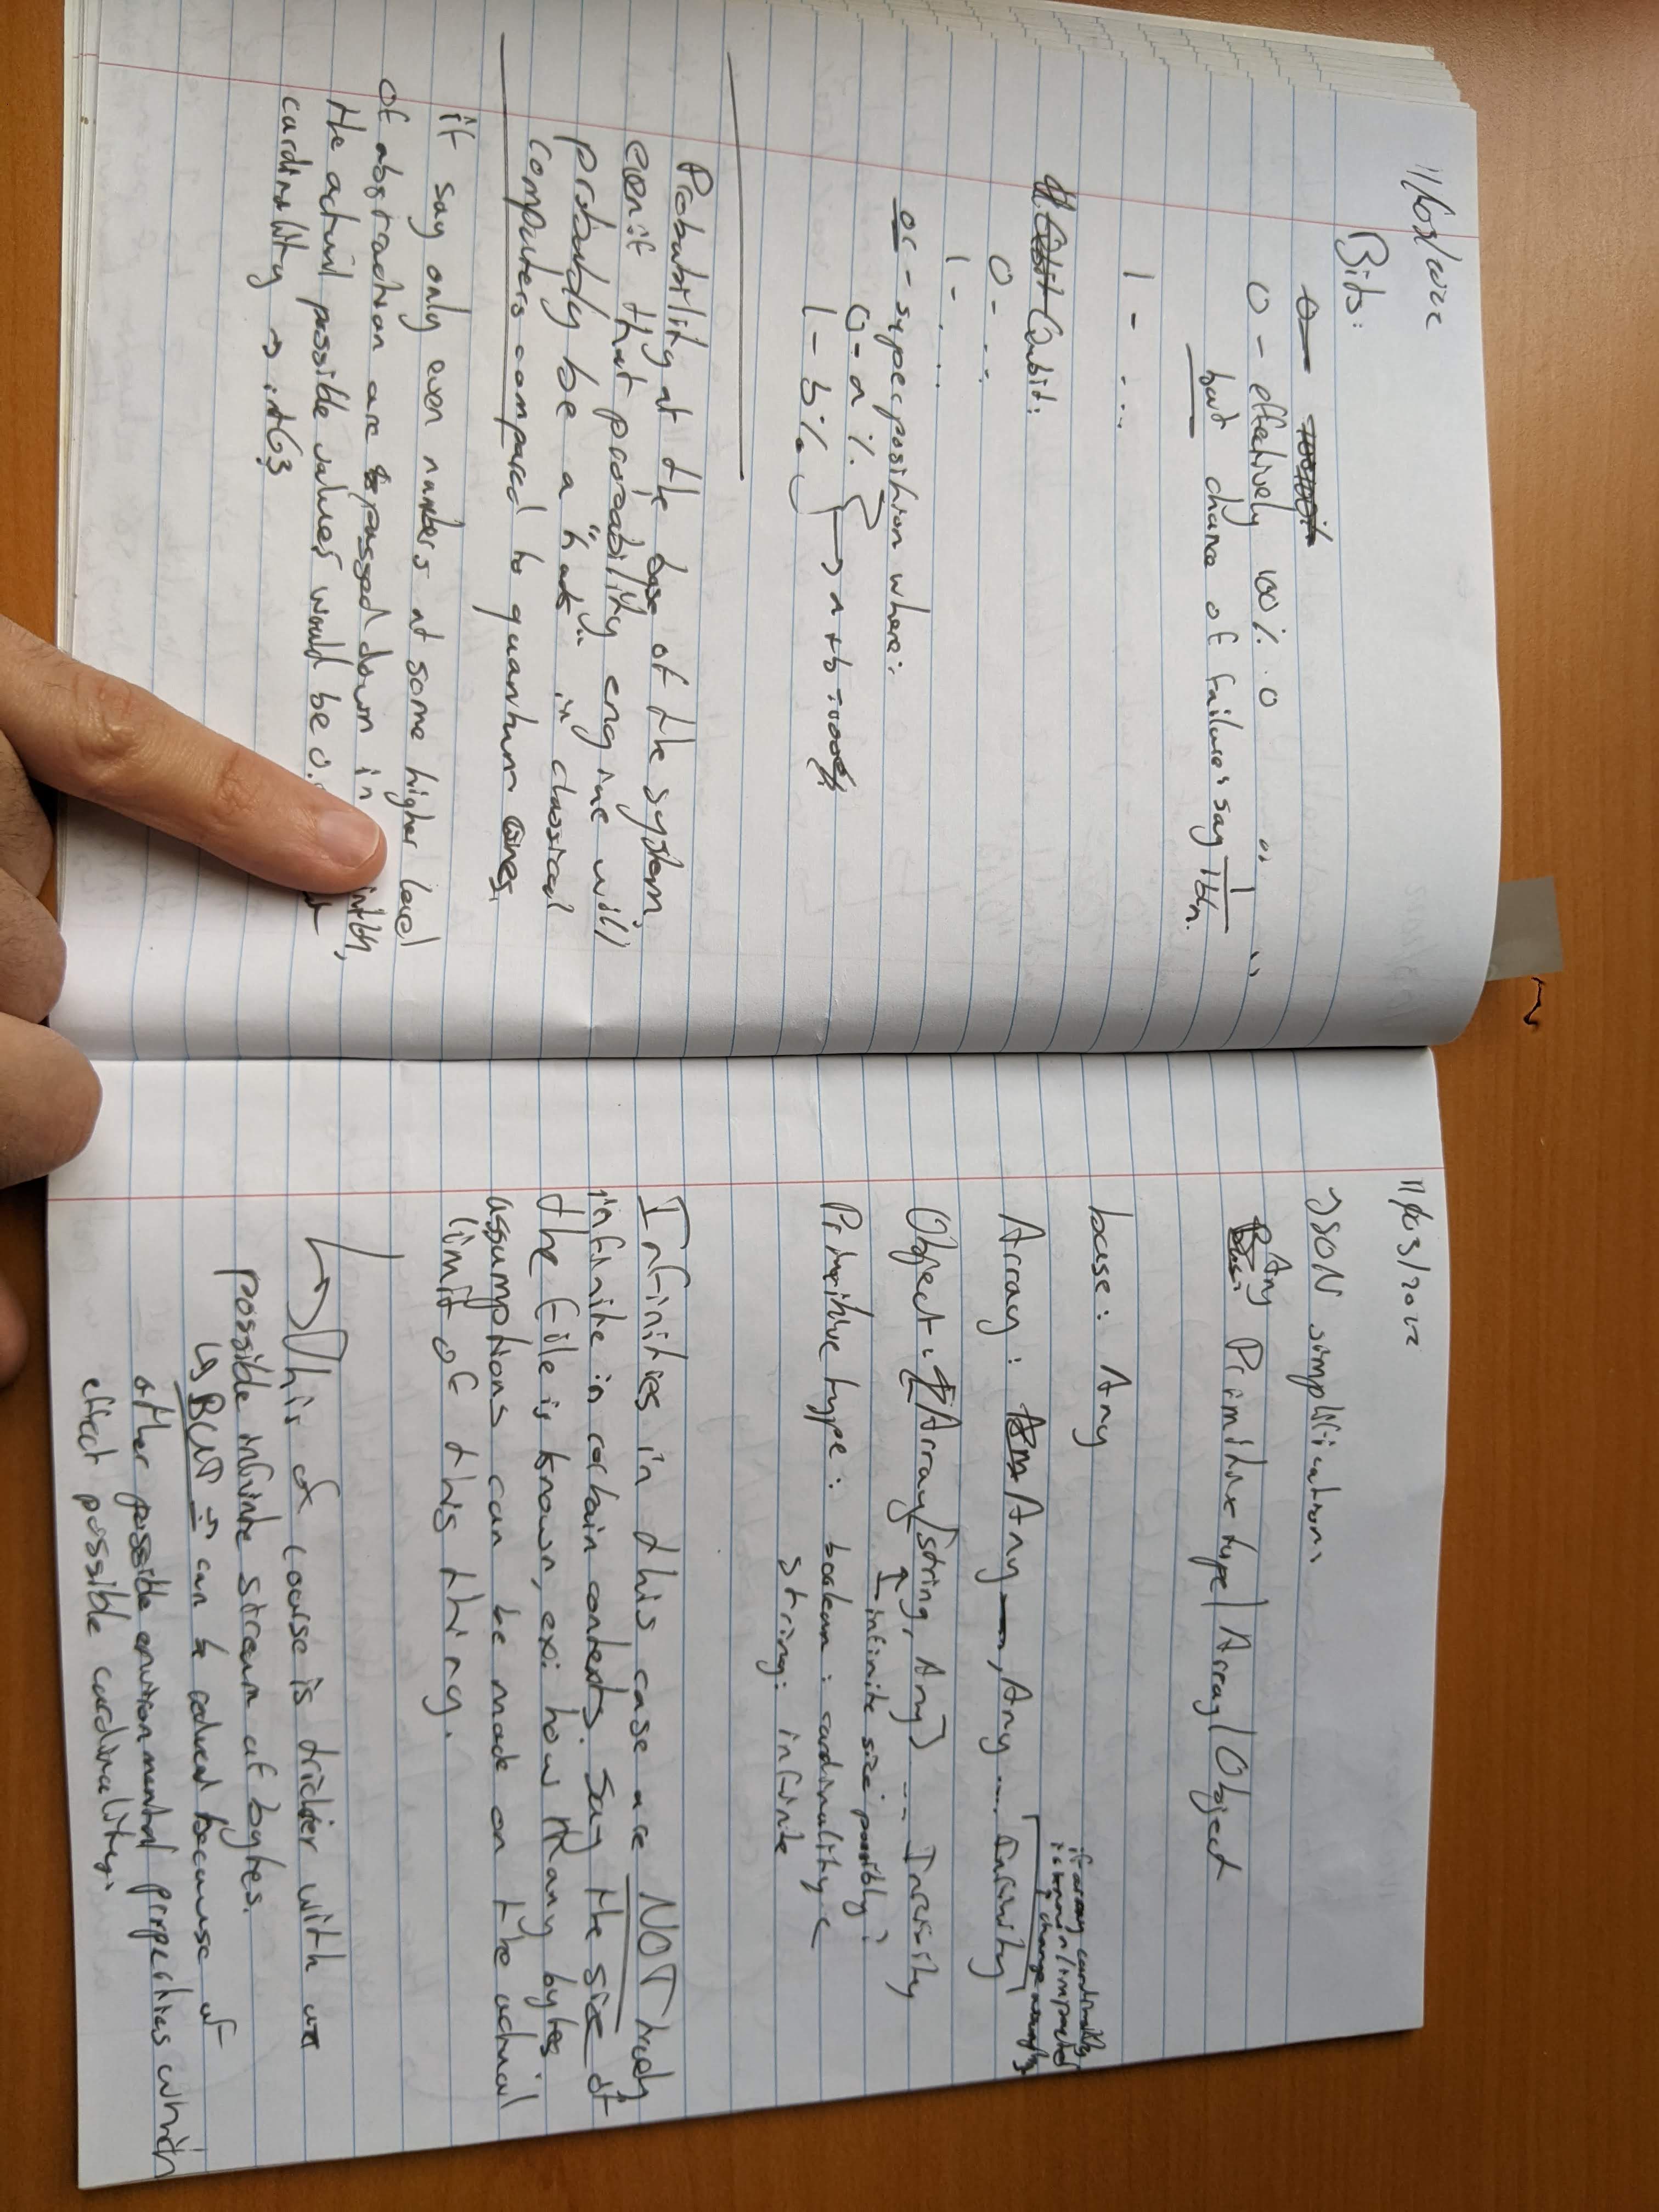 11/03/2022
Bits:
0 - effectively 100% 0 " "
but chance of failure: say 1/1bn.
1 - ...
Qubit:
0 - ...
1 - ...
or - superposition where:
0 - a%
1 - b% → a + b =
Probability at the base of the system,
even if that probability engine will
probably be a "hack" in classical
computers compared to quantum ones.
if say only even numbers at some higher level
of abstraction are passed down in int64,
the actual possible values would be
cardinality → int63
11/03/2022
JSON simplification,
Any Primitive type | Array | Object
base: Any
if array cardinality
is known/imported
change accordingly
Array: Any, Any .... Infinity
Object: [Array[string, Any] ... Infinity
infinite size possibly
Primitive type: boolean: cardinality 2
string: infinite
Infinities in this case are NOT truly
infinite in certain contexts. Say the size of
the file is known, ex: how many bytes
assumptions can be made on the actual
limit of this thing.
This of course is trickier with
possible infinite stream of bytes.
↳ BUT → can be solved because of
other possible environmental properties which
effect possible cardinality.